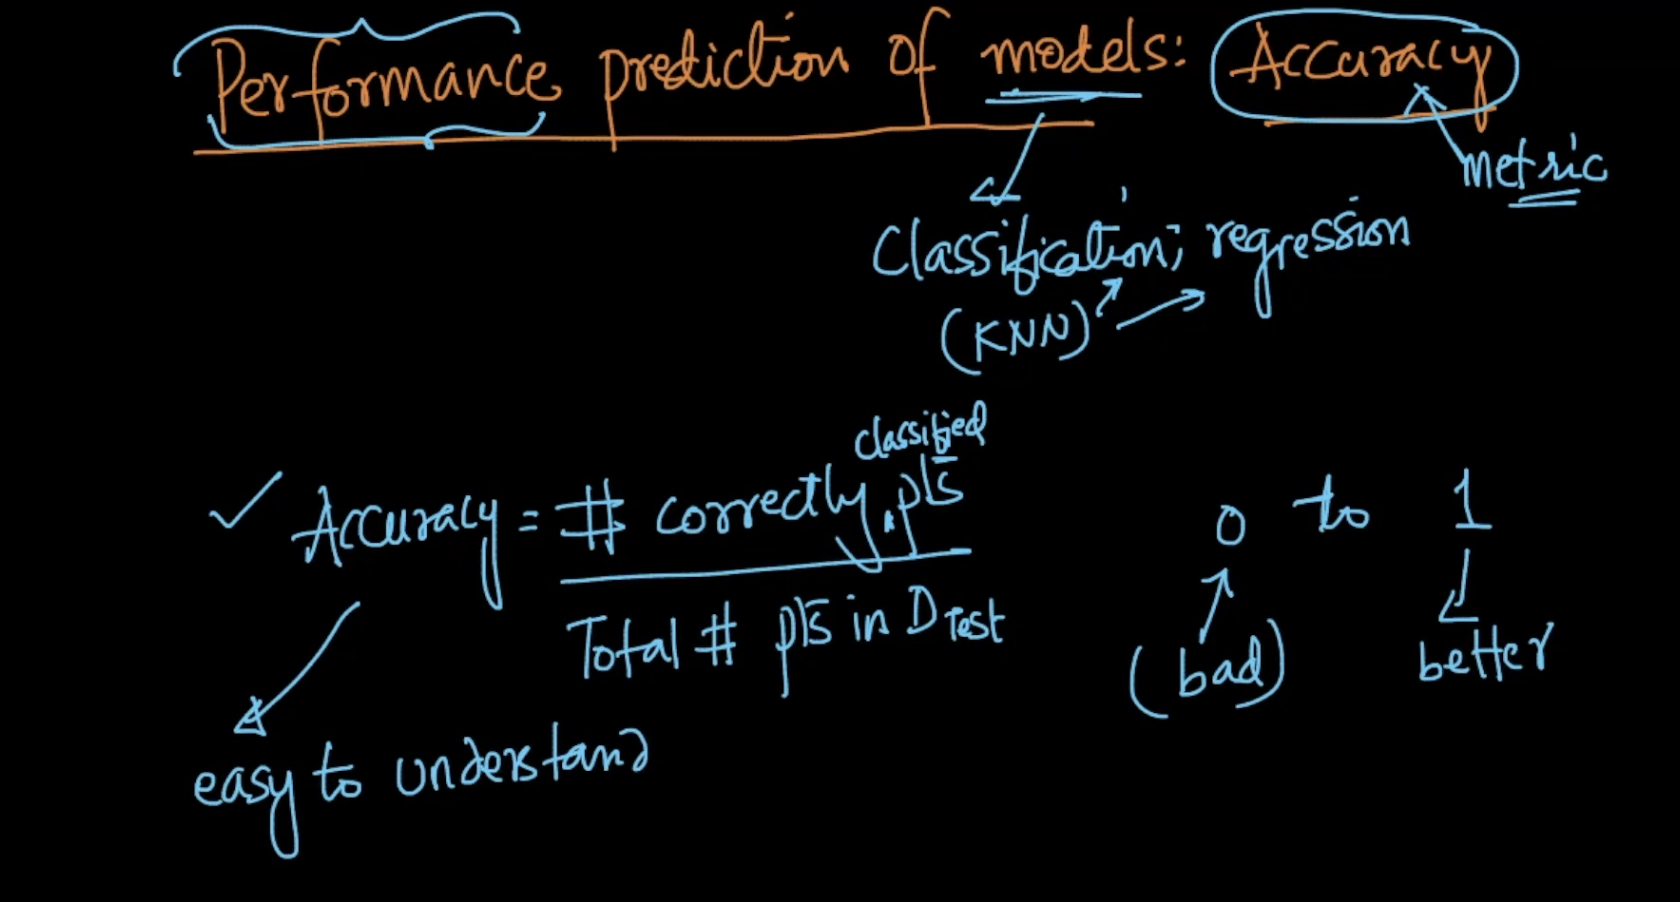 Performance prediction of models: Accuracy
metric
Classification; regression
(KNN)
classified
Accuracy = # correctly, pts
Total # pts in DTest
0 to 1
(bad) better
easy to understand